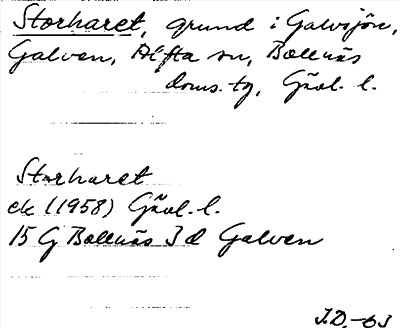 Storharet, grund i Galvsjön,
Galven, Alfta sn, Bollnäs
doms. tg, Gävl. l.
Storharet
ek (1958) Gävl. l.
15 G Bollnäs 3 d Galven
J.D. -63